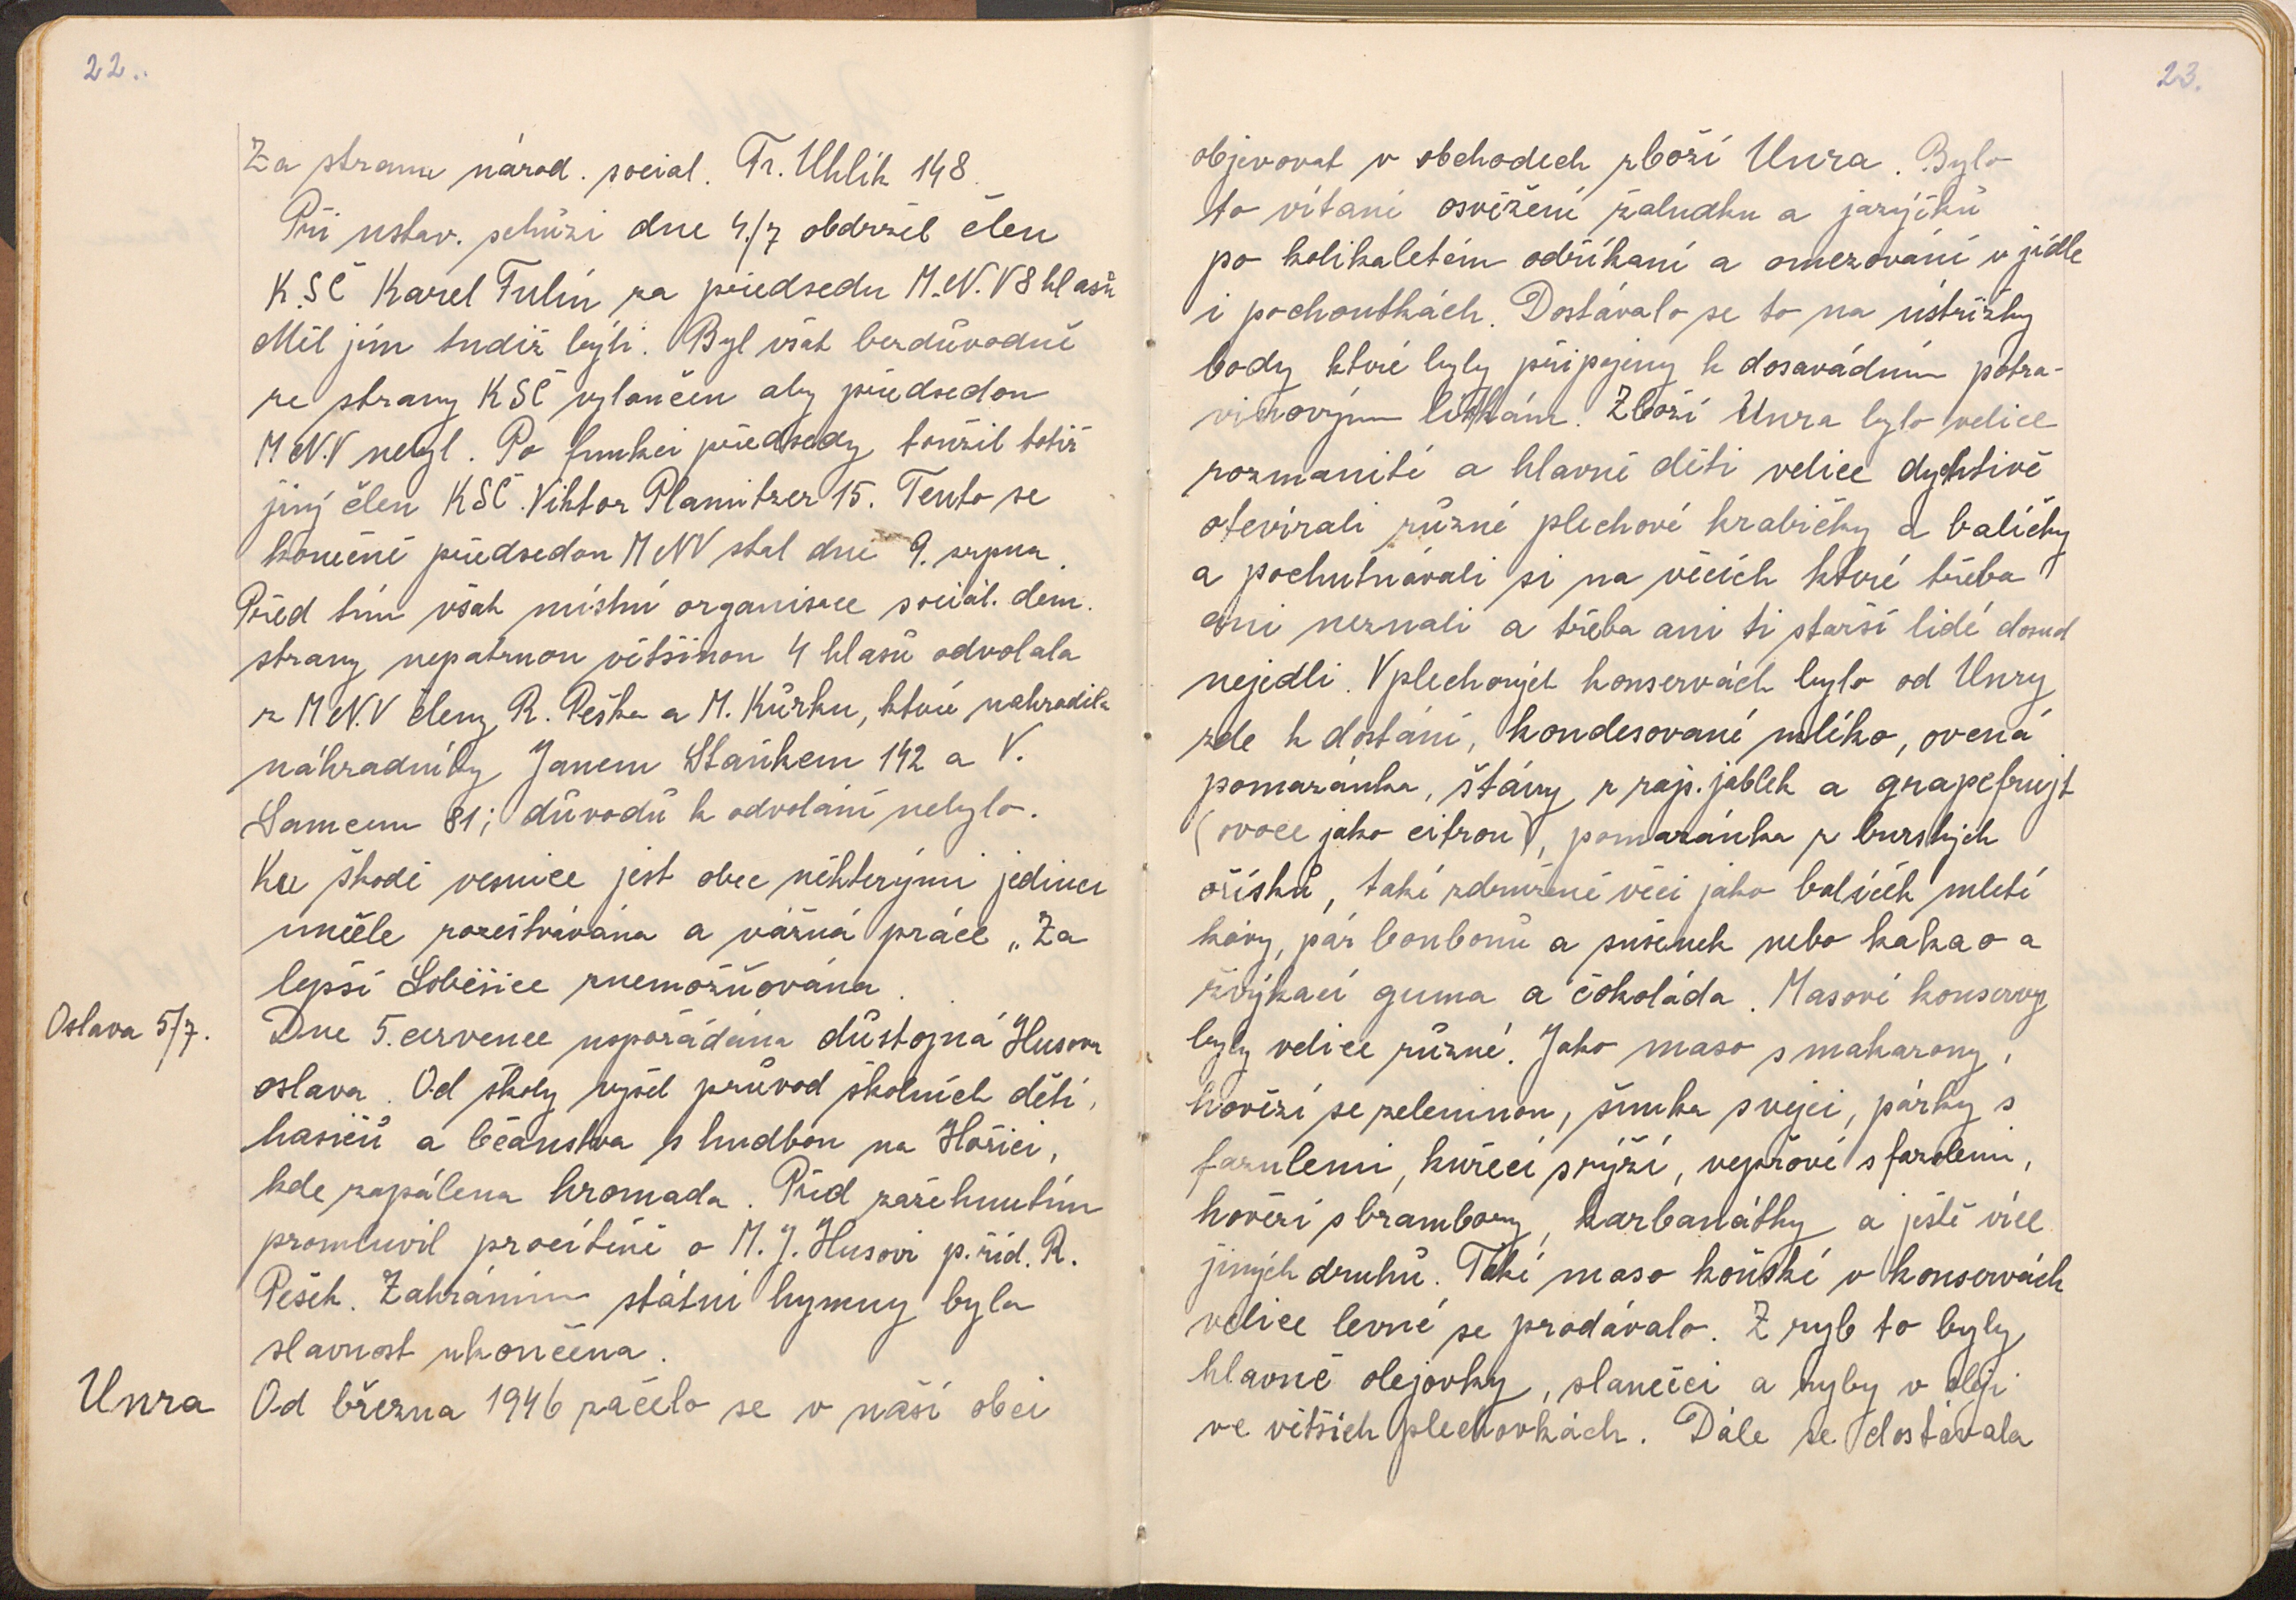 22.
Za stranu národ. social. Fr. Uhlík 148.
Při ustav. schůzi dne 4./7 obdržel člen
K.SČ Karel Fulín za předsedu M.N.V 8 hlasů
Měl jím tudíž býti. Byl však bezdůvodně
ze strany KSČ vyloučen aby předsedou
M.N.V nebyl. Po funkci předsedy toužil totiž
jiný člen KSČ. Viktor Plamitzer 15. Tento se
konečně předsedou MNV stal dne 9. srpna.
Před tím však místní organisace sociál. dem.
strany nepatrnou většinou 4 hlasů odvolala
z M.N.V členy R. Peška a M. Kůrku, které nahradila
náhradníky Janem Staňkem 142 a V.
Samcem 81; důvodů k odvolání nebylo.
Ku škodě vesnice jest obec některými jedinci
uměle rozeštvávána a vážná práce „Za
lepší Soběšice znemožňována.
Oslava 5/7.
Dne 5. července uspořádána důstojná Husova
oslava. Od školy vyšel průvod školních dětí,
hasičů a občanstva s hudbou na Hořici,
kde zapálena hromada. Před zažehnutím
promluvil procítěně o M. J. Husovi p. říd. R.
Pešek. Zahráním státní hymny byla
slavnost ukončena.
Unra
Od března 1946 začelo se v naší obci
23.
objevovat v obchodech zboží Unra. Bylo
to vítané osvěžení žaludku a jazýčků
po kolikaletém odříkaní a omezování v jídle
i pochoutkách. Dostávalo se to na ústřižky
body které byly připojeny k dosavádním potra-
vinovým lístkám. Zboží Unra bylo velice
rozmanité a hlavně děti velice dychtivě
otevírali různé plechové krabičky a balíčky
a pochutnávali si na věcích které třeba
ani neznali a třeba ani ti starší lidé dosud
nejedli. V plechových konservách bylo od Unry
zde k dostání, kondesované mléko, ovená
pomazánka, štávy z raj. jablek a grapefrujt
(ovoce jako citron), pomazánka z burských
oříšků, také združené věci jako balíček mleté
kávy, pár bonbonů a sušenek nebo kakao a
žvýkací guma a čokoláda. Masové konservy
byly velice různé. Jako maso s makarony,
hovězí se zeleninou, šunka s vejci, párky s
fazulemi, kuřecí s rýží, vepřové s fazolemi,
hovězí s brambory, karbanátky a ještě více
jiných druhů. Také maso koňské v konservách
velice levné se prodávalo. Z ryb to byly
hlavně olejovky, slanečci a ryby v oleji
ve větších plechovkách. Dále se dostávala